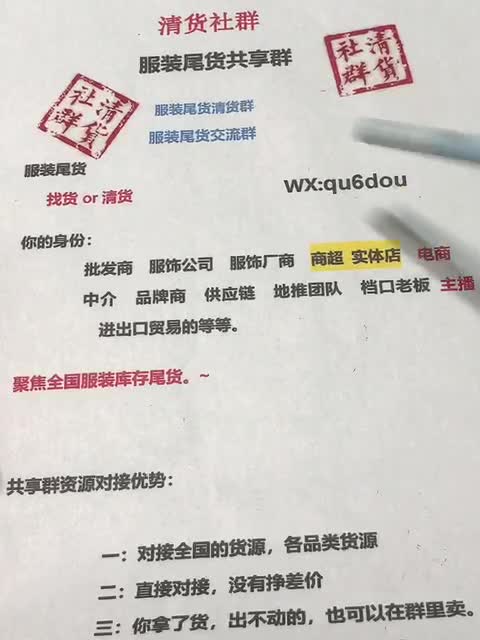 清货社群
服装尾货共享群
清货社群
清货社群
服装尾货清货群
服装尾货交流群
服装尾货
找货 or 清货
WX:qu6dou
你的身份：
批发商 服饰公司 服饰厂商 商超 实体店 电商
中介 品牌商 供应链 地推团队 档口老板 主播
进出口贸易的等等。
聚焦全国服装库存尾货。~
共享群资源对接优势：
一：对接全国的货源，各品类货源
二：直接对接，没有挣差价
三：你拿了货，出不动的，也可以在群里卖。